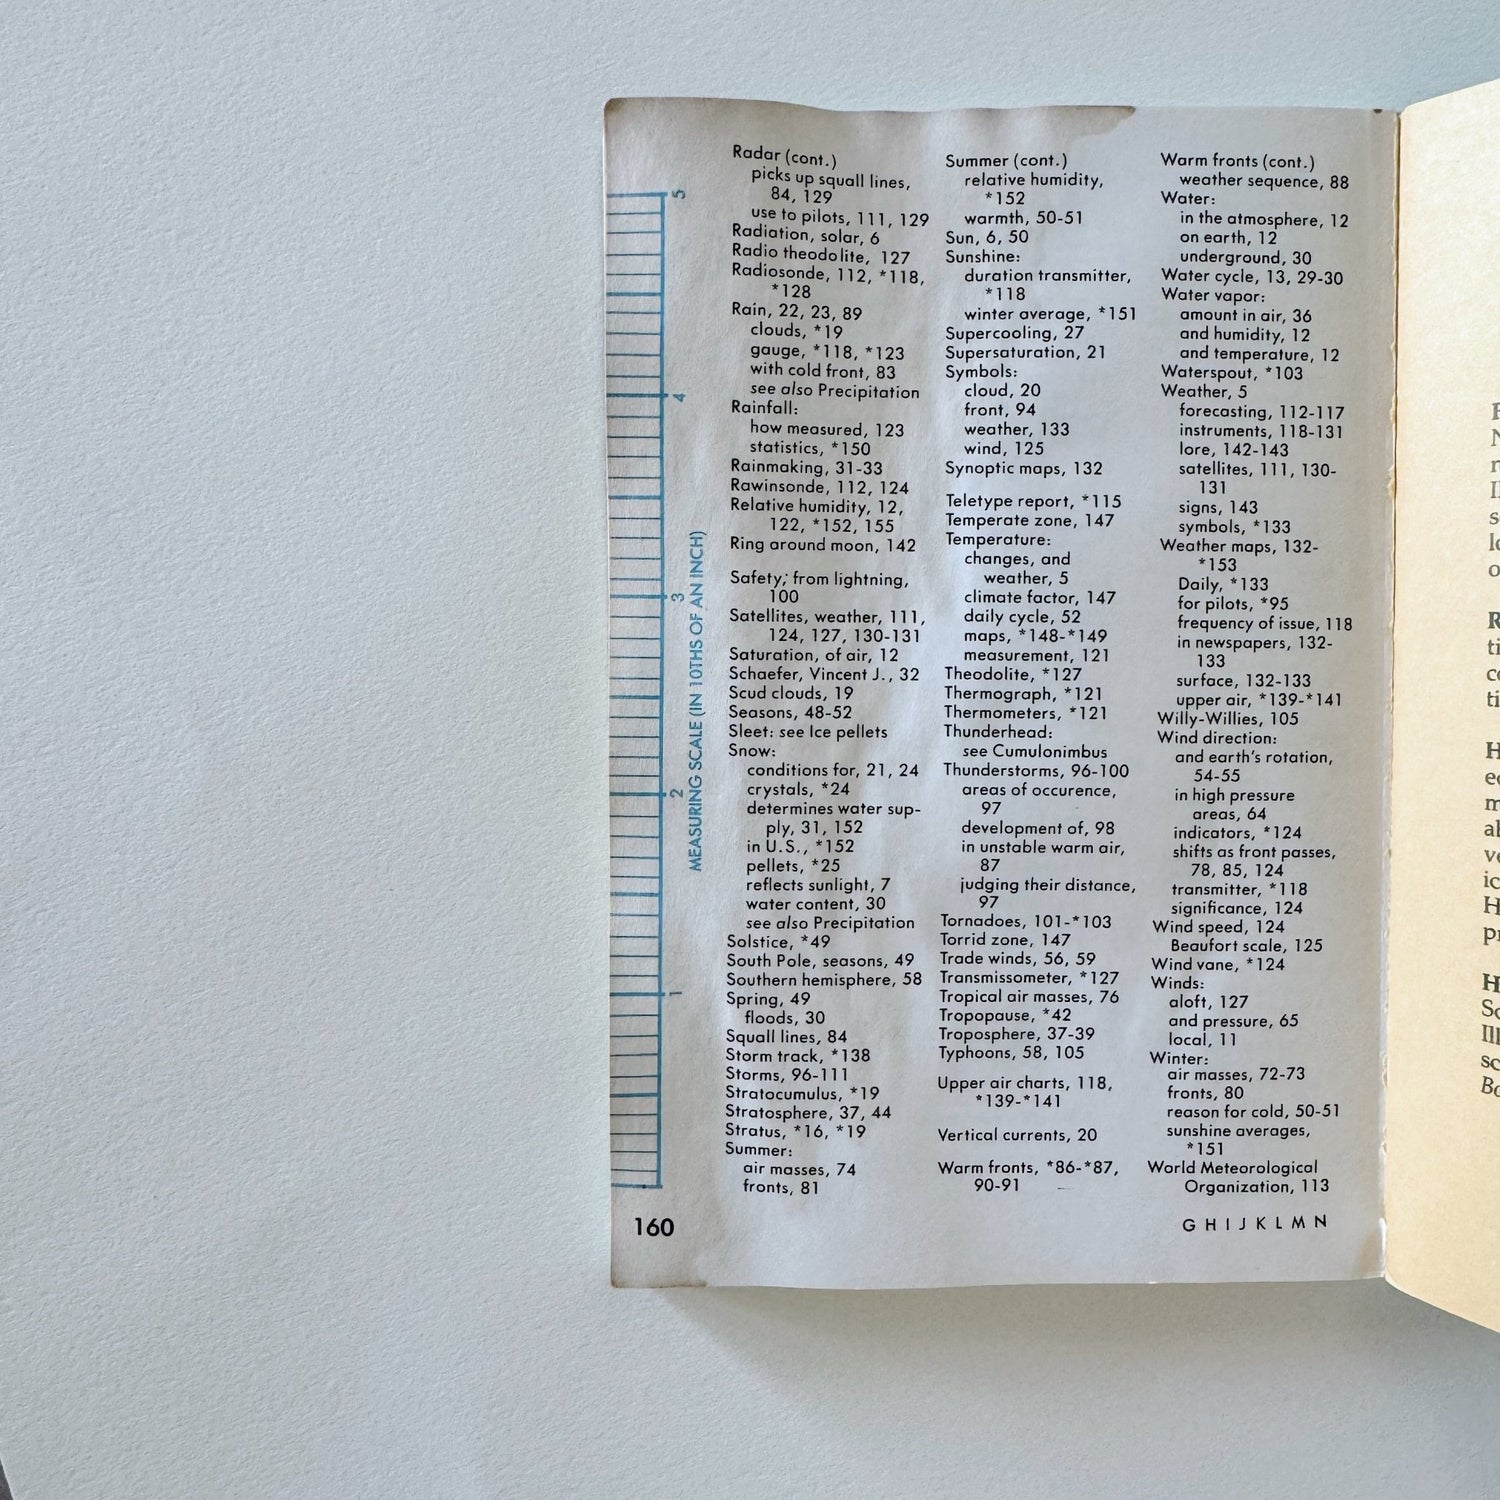 Radar (cont.)
picks up squall lines,
84, 129
use to pilots, 111, 129
Radiation, solar, 6
Radio theodolite, 127
Radiosonde, 112, *118,
*128
Rain, 22, 23, 89
clouds, *19
gauge, *118, *123
with cold front, 83
see also Precipitation
Rainfall:
how measured, 123
statistics, *150
Rainmaking, 31-33
Rawinsonde, 112, 124
Relative humidity, 12,
122, *152, 155
Ring around moon, 142
Safety; from lightning,
100
Satellites, weather, 111,
124, 127, 130-131
Saturation, of air, 12
Schaefer, Vincent J., 32
Scud clouds, 19
Seasons, 48-52
Sleet: see Ice pellets
Snow:
conditions for, 21, 24
crystals, *24
determines water sup-
ply, 31, 152
in U.S., *152
pellets, *25
reflects sunlight, 7
water content, 30
see also Precipitation
Solstice, *49
South Pole, seasons, 49
Southern hemisphere, 58
Spring, 49
floods, 30
Squall lines, 84
Storm track, *138
Storms, 96-111
Stratocumulus, *19
Stratosphere, 37, 44
Stratus, *16, *19
Summer:
air masses, 74
fronts, 81
Summer (cont.)
relative humidity,
*152
warmth, 50-51
Sun, 6, 50
Sunshine:
duration transmitter,
*118
winter average, *151
Supercooling, 27
Supersaturation, 21
Symbols:
cloud, 20
front, 94
weather, 133
wind, 125
Synoptic maps, 132
Teletype report, *115
Temperate zone, 147
Temperature:
changes, and
weather, 5
climate factor, 147
daily cycle, 52
maps, *148-*149
measurement, 121
Theodolite, *127
Thermograph, *121
Thermometers, *121
Thunderhead:
see Cumulonimbus
Thunderstorms, 96-100
areas of occurence,
97
development of, 98
in unstable warm air,
87
judging their distance,
97
Tornadoes, 101-*103
Torrid zone, 147
Trade winds, 56, 59
Transmissometer, *127
Tropical air masses, 76
Tropopause, *42
Troposphere, 37-39
Typhoons, 58, 105
Upper air charts, 118,
*139-*141
Vertical currents, 20
Warm fronts, *86-*87,
90-91
Warm fronts (cont.)
weather sequence, 88
Water:
in the atmosphere, 12
on earth, 12
underground, 30
Water cycle, 13, 29-30
Water vapor:
amount in air, 36
and humidity, 12
and temperature, 12
Waterspout, *103
Weather, 5
forecasting, 112-117
instruments, 118-131
lore, 142-143
satellites, 111, 130-
131
signs, 143
symbols, *133
Weather maps, 132-
*153
Daily, *133
for pilots, *95
frequency of issue, 118
in newspapers, 132-
133
surface, 132-133
upper air, *139-*141
Willy-Willies, 105
Wind direction:
and earth's rotation,
54-55
in high pressure
areas, 64
indicators, *124
shifts as front passes,
78, 85, 124
transmitter, *118
significance, 124
Wind speed, 124
Beaufort scale, 125
Wind vane, *124
Winds:
aloft, 127
and pressure, 65
local, 11
Winter:
air masses, 72-73
fronts, 80
reason for cold, 50-51
sunshine averages,
*151
World Meteorological
Organization, 113
5
4
3
2
1
MEASURING SCALE (IN 10THS OF AN INCH)
160
G H I J K L M N